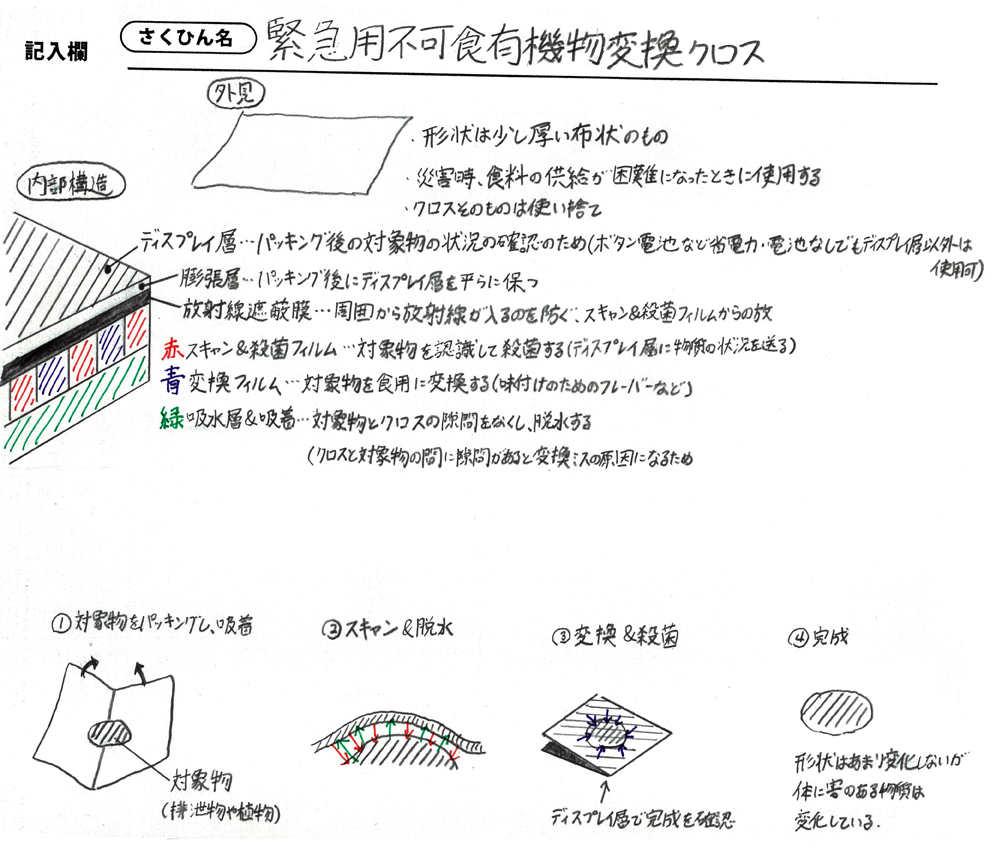 記入欄
さくひん名
緊急用不可食有機物変換クロス
外見
・形状は少し厚い布状のもの
・災害時、食料の供給が困難になったときに使用する
・クロスそのものは使い捨て
内部構造
ディスプレイ層…パッキング後の対象物の状況の確認のため(ボタン電池など省電力・電池なしでもディスプレイ層以外は
使用可)
膨張層…パッキング後にディスプレイ層を平らに保つ
放射線遮蔽膜…周囲から放射線が入るのを防ぐ、スキャン&殺菌フィルムからの放
赤 スキャン&殺菌フィルム…対象物を認識して殺菌する(ディスプレイ層に物質の状況を送る)
青 変換フィルム…対象物を食用に変換する(味付けのためのフレーバーなど)
緑 吸水層&吸着…対象物とクロスの隙間をなくし、脱水する
(クロスと対象物の間に隙間があると変換ミスの原因になるため
①対象物をパッキングし、吸着
対象物
(排泄物や植物)
②スキャン&脱水
③変換&殺菌
ディスプレイ層で完成を確認
④完成
形状はあまり変化しないが
体に害のある物質は
変化している.